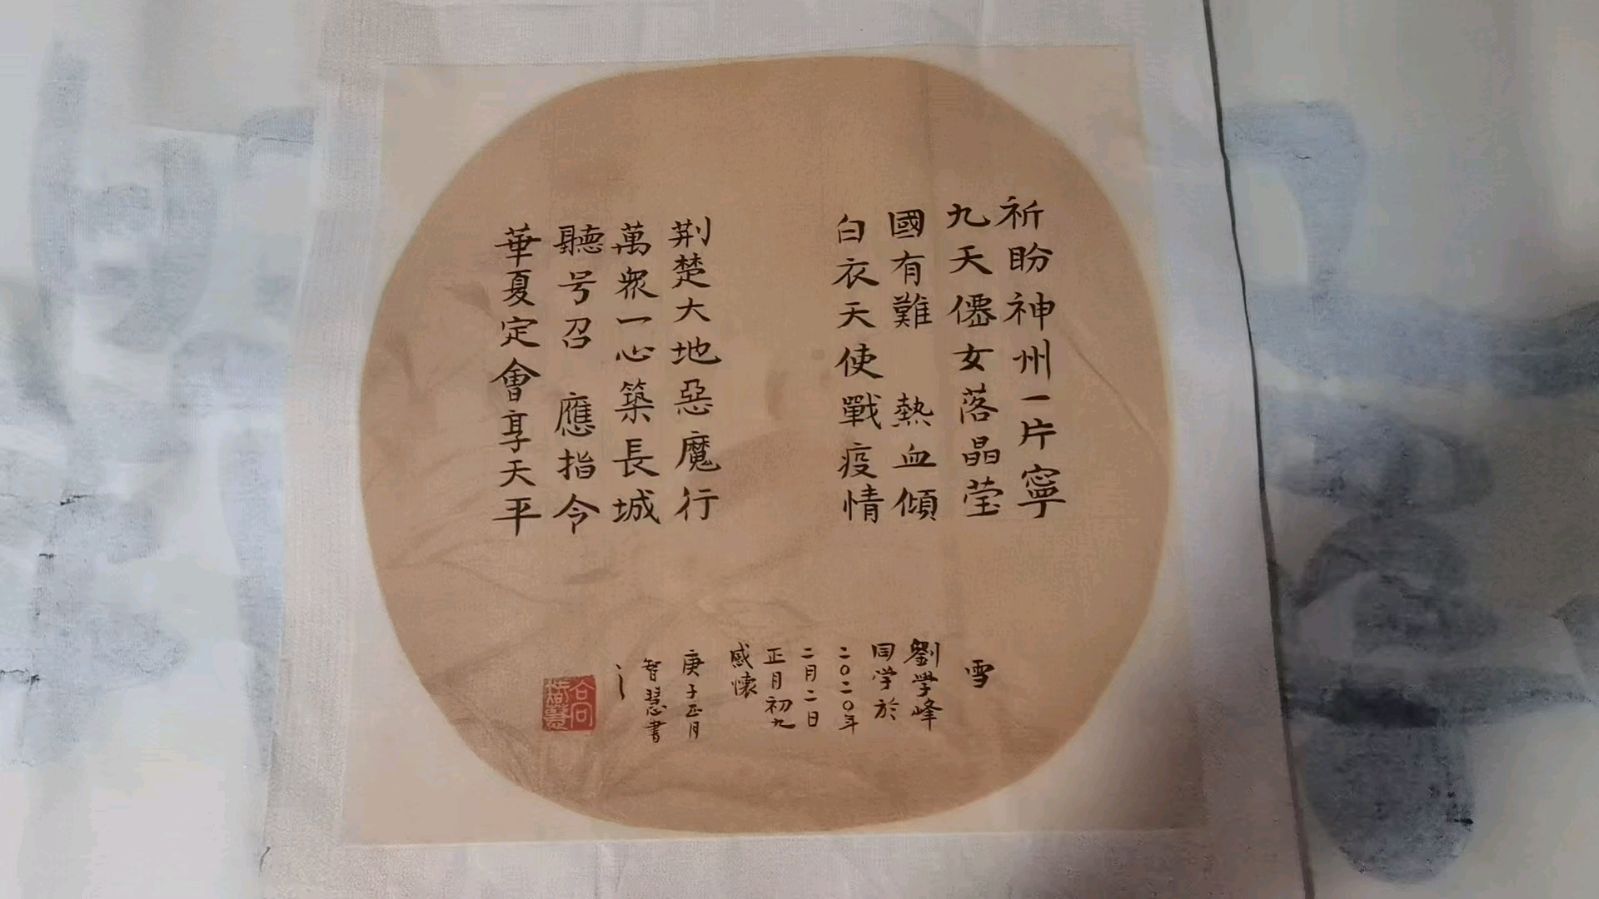 祈盼神州一片寧
九天僊女落晶莹
國有難 熱血傾
白衣天使戰疫情
荆楚大地惡魔行
萬衆一心築長城
聽号召 應指令
華夏定會享天平
雪
劉学峰
同学於
二〇二〇年
二月二日
正月初九
感懷
庚子正月
智慧書